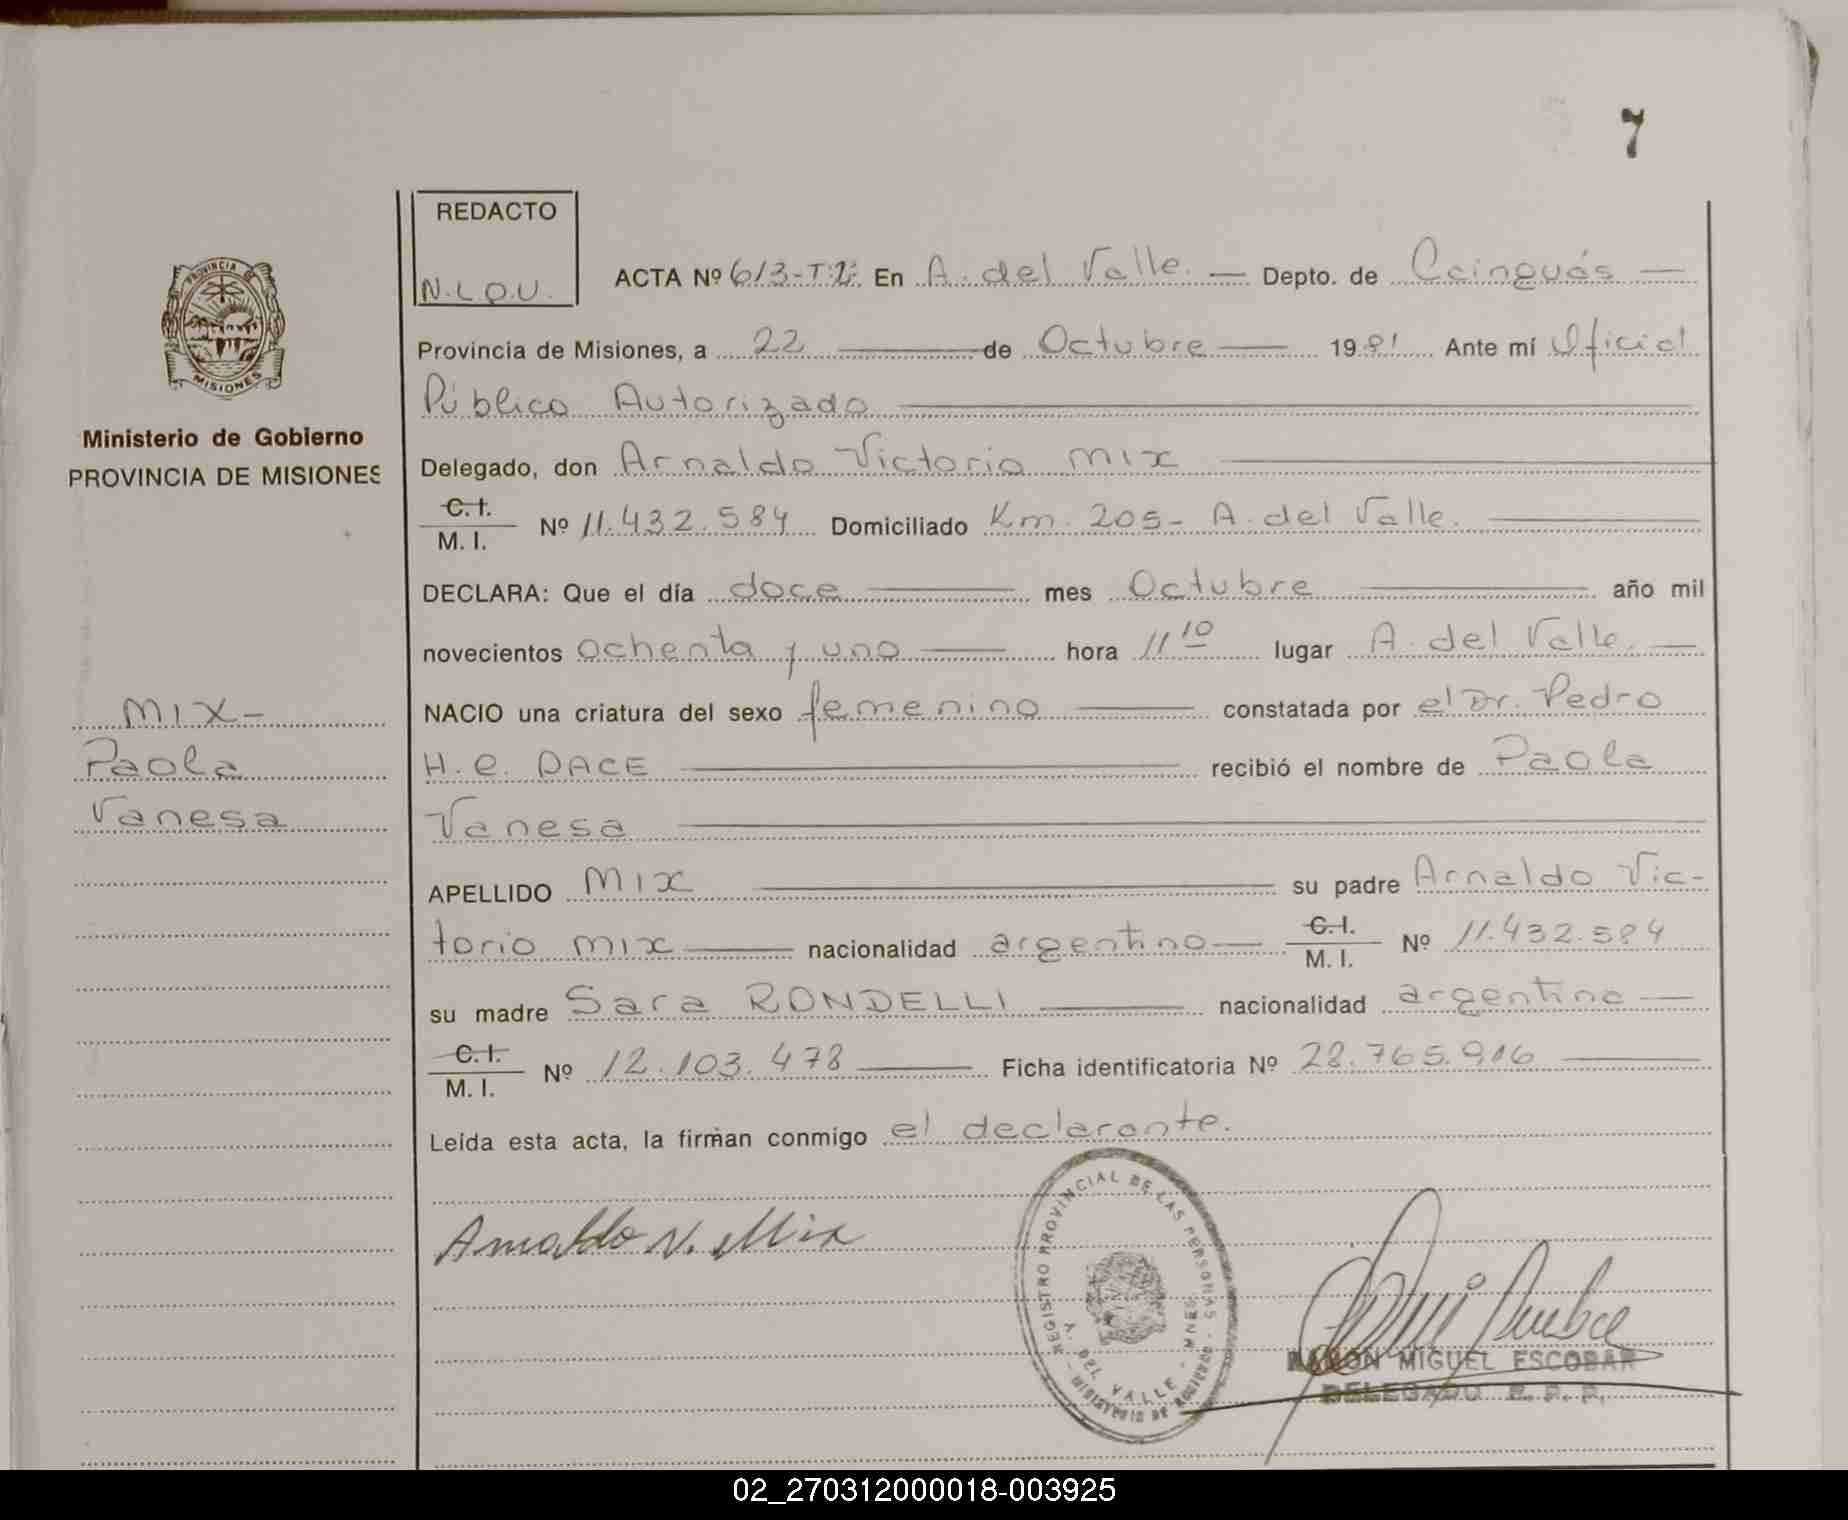 7
REDACTO
N.L.O.U.
ACTA Nº 613-T:2: En A. del Valle. Depto. de Cainguás
Provincia de Misiones, a 22 de Octubre 1981 Ante mí Oficial
Público Autorizado
Delegado, don Arnaldo Victorio MIX
C.I.
M. I. Nº 11.432.584 Domiciliado Km. 205- A. del Valle.
DECLARA: Que el día doce mes Octubre año mil
novecientos ochenta y uno hora 11 10 lugar A. del Valle.
NACIO una criatura del sexo femenino constatada por el Dr. Pedro
H. C. DACE recibió el nombre de Paola
Vanesa
APELLIDO MIX su padre Arnaldo Vic-
torio MIX nacionalidad argentino C.I.
M. I. Nº 11.432.584
su madre Sara RONDELLI nacionalidad argentina
C.I.
M. I. Nº 12.103.478 Ficha identificatoria Nº 28.765.906
Leída esta acta, la firman conmigo el declarante.
PROVINCIA DE
MISIONES
Ministerio de Gobierno
PROVINCIA DE MISIONES
MIX-
Paola
Vanesa
Arnaldo V. Mix
REGISTRO PROVINCIAL DE LAS PERSONAS
MINISTERIO DE
DEL VALLE - MNES.
RAMÓN MIGUEL ESCOBAR
DELEGADO R. P. P.
02_270312000018-003925